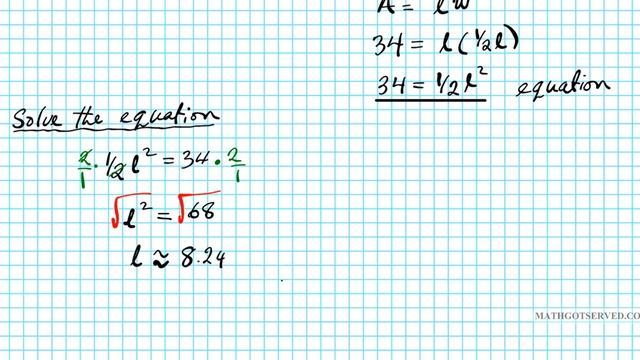 A = lw
34 = l(1/2l)
34 = 1/2l² equation
Solve the equation
2/1 · 1/2l² = 34 · 2/1
√l² = √68
l ≈ 8.24
MATHGOTSERVED.CO